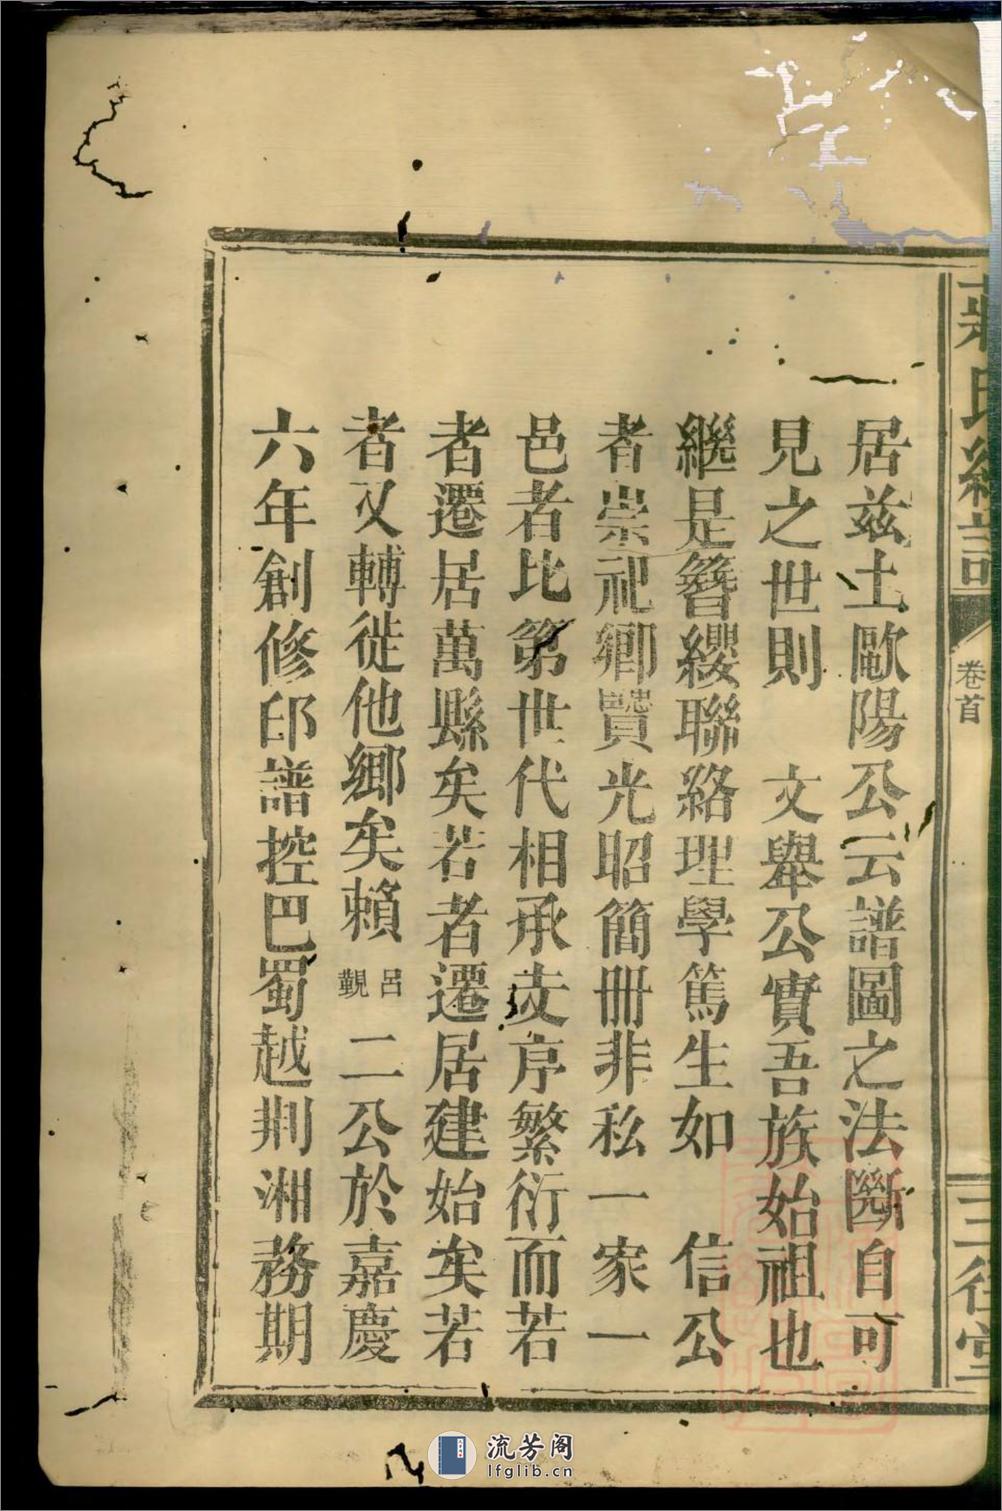 氏續譜
卷首
三徑堂
居茲土歐陽公云譜圖之法斷自可
見之世則　文舉公實吾族始祖也
繼是簪纓聯絡理學篤生如　信公
者崇祀鄉賢光昭簡冊非私一家一
邑者比第世代相承支序繁衍而若
者遷居萬縣矣若者遷居建始矣若
者又轉徙他鄉矣賴呂覲二公於嘉慶
六年創修印譜控巴蜀越荆湘務期
流芳阁
lfglib.cn